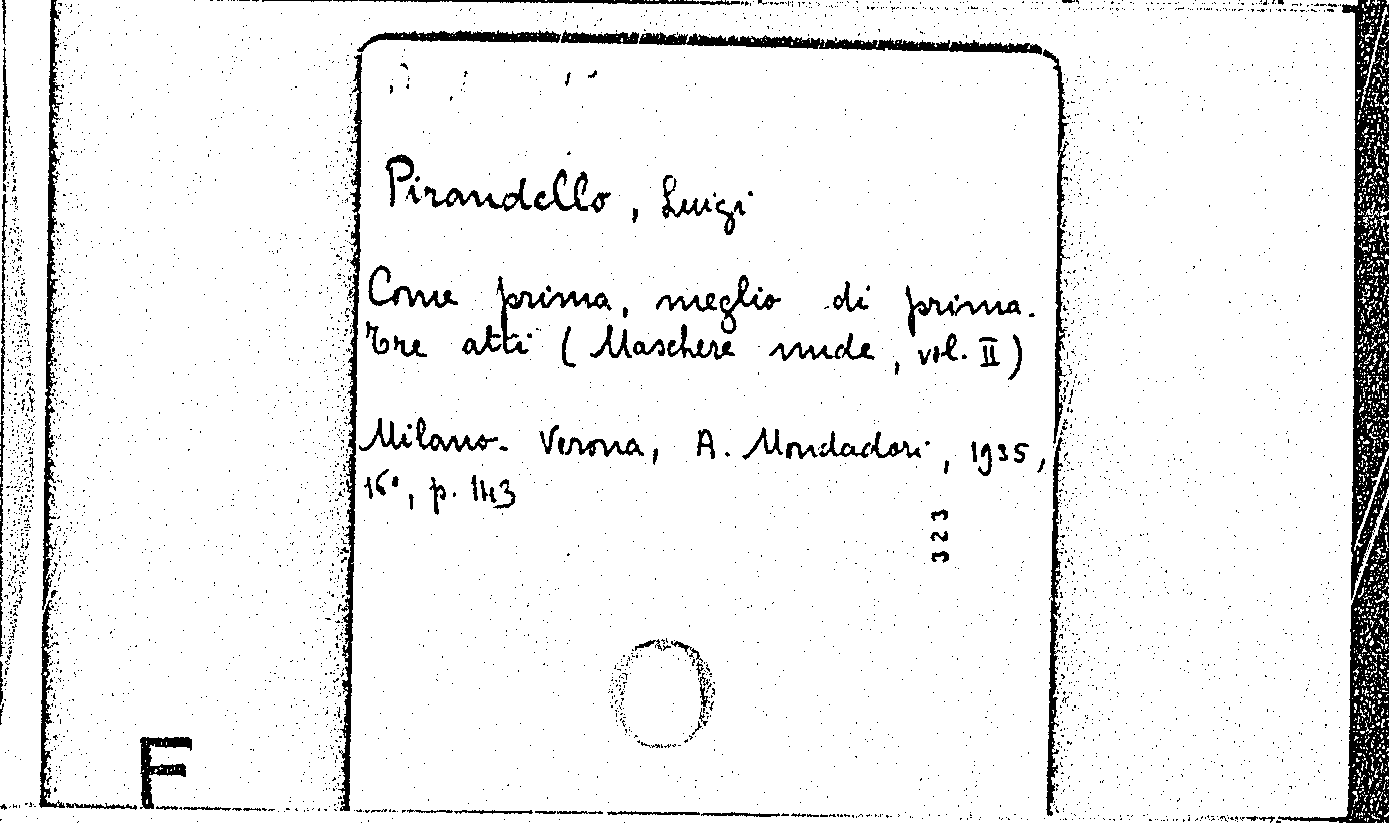 Pirandello, Luigi
Come prima, meglio di prima.
Tre atti (Maschere nude, vol. II)
Milano-Verona, A. Mondadori, 1935,
16°, p. 143
323
F